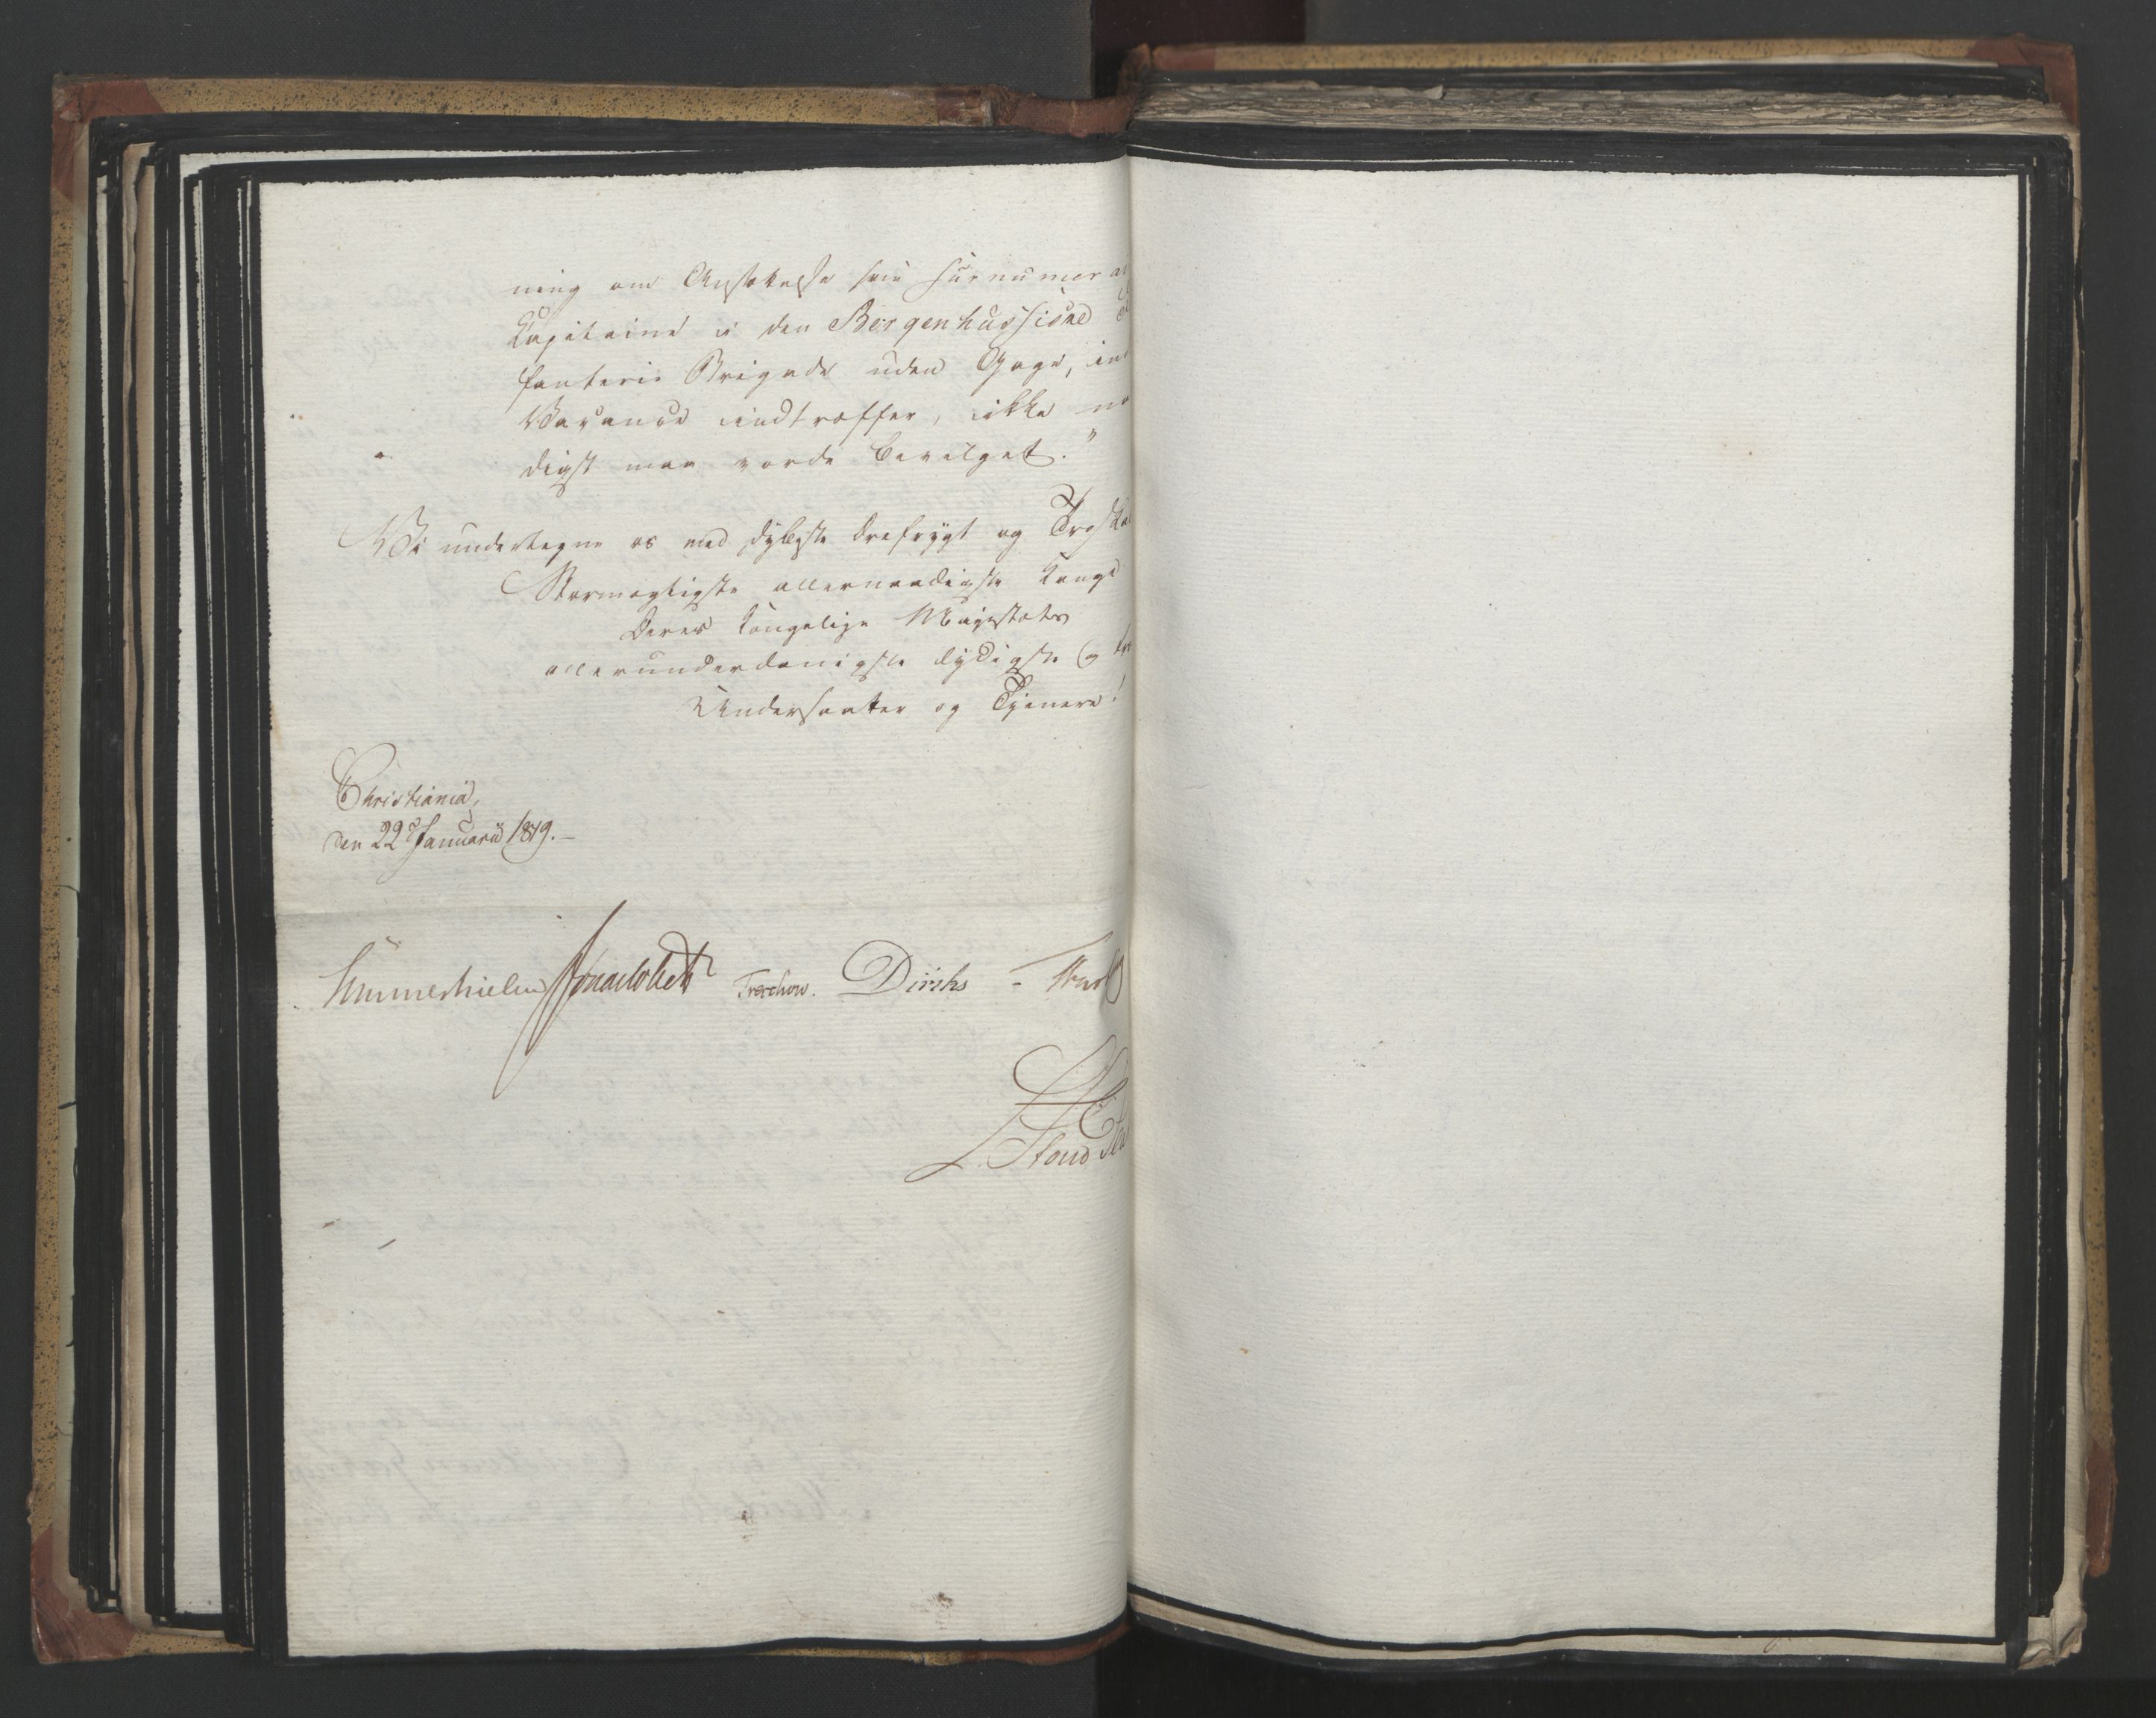 ning om Ansættelse som surnumerai
Kapitaine i den Bergenhussiske
fanterie Brigade uden Gage, in
Vacance indtræffer, ikke na
digst maa vorde bevilget."
Vi undertegne os med dybeste Ærefrygt og Troskab
Stormægtigste allernaadigste Konge
Deres Kongelige Majestæts
allerunderdanigste lydigste og tro
Undersaatter og Tjenere!
Christiania,
den 22d Januarii 1819.
Hummerhielm Treschow. Diriks